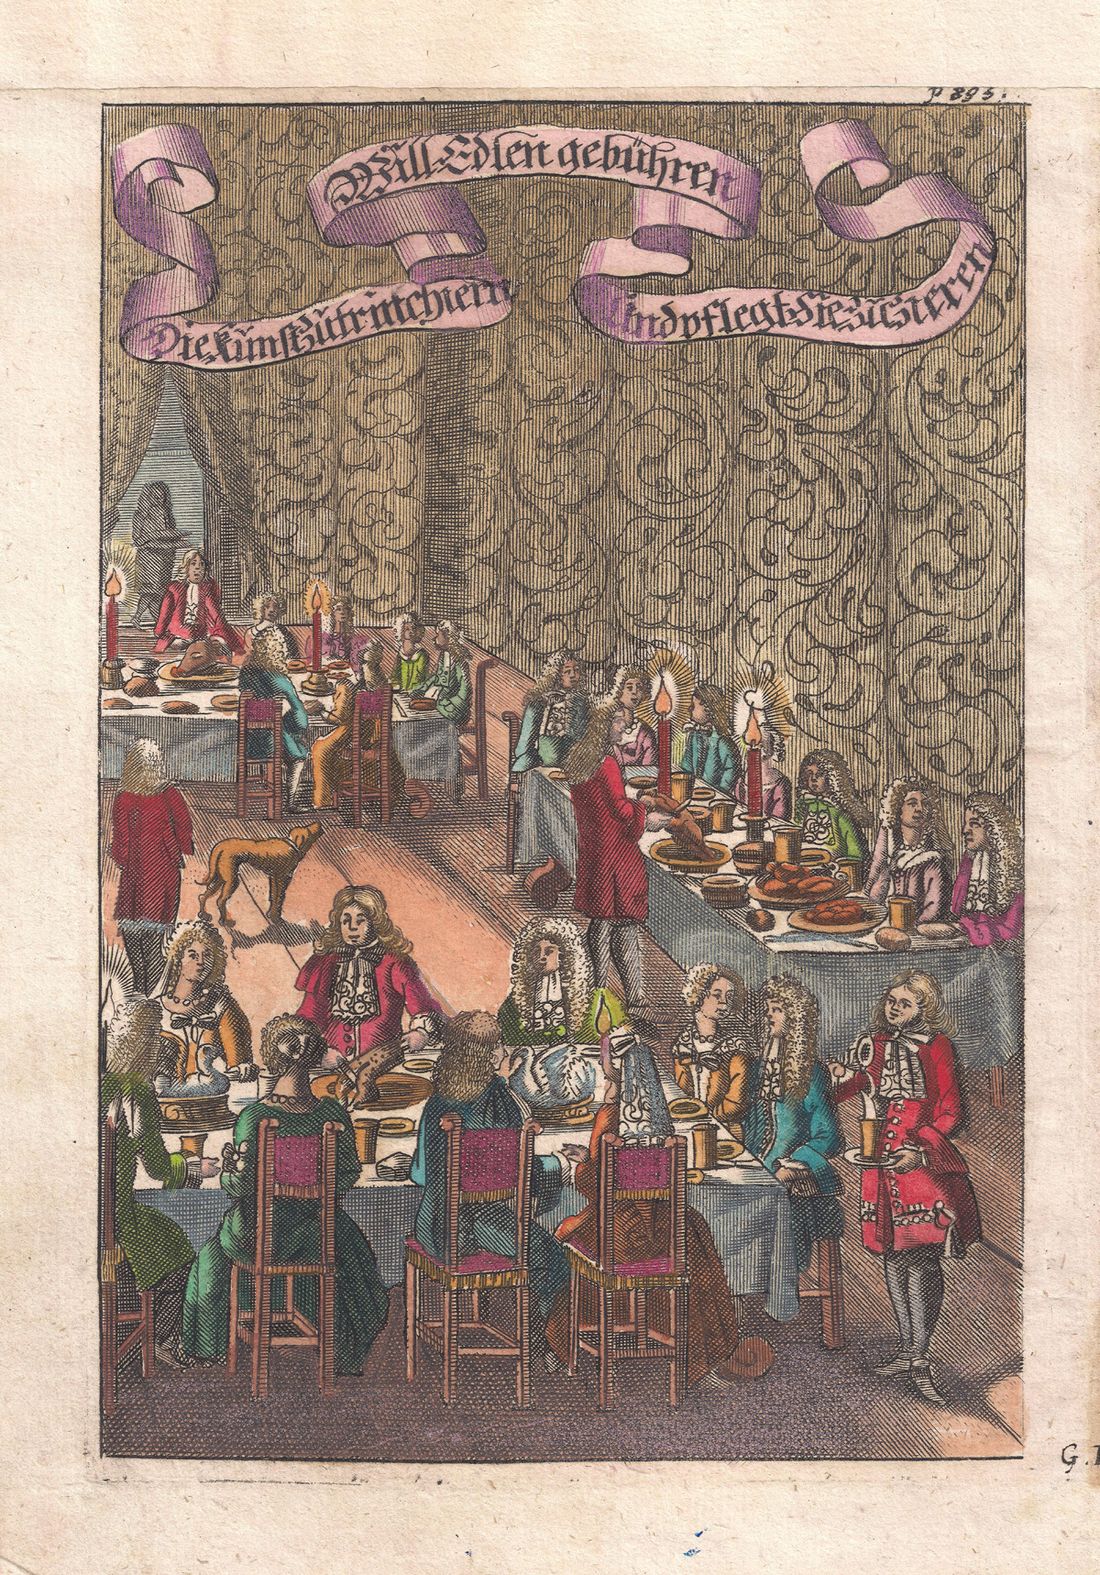 P 895.
Die Kunst zu trintchiern
Will Edlen gebühren
Und pflegt Sie zu zieren
G.